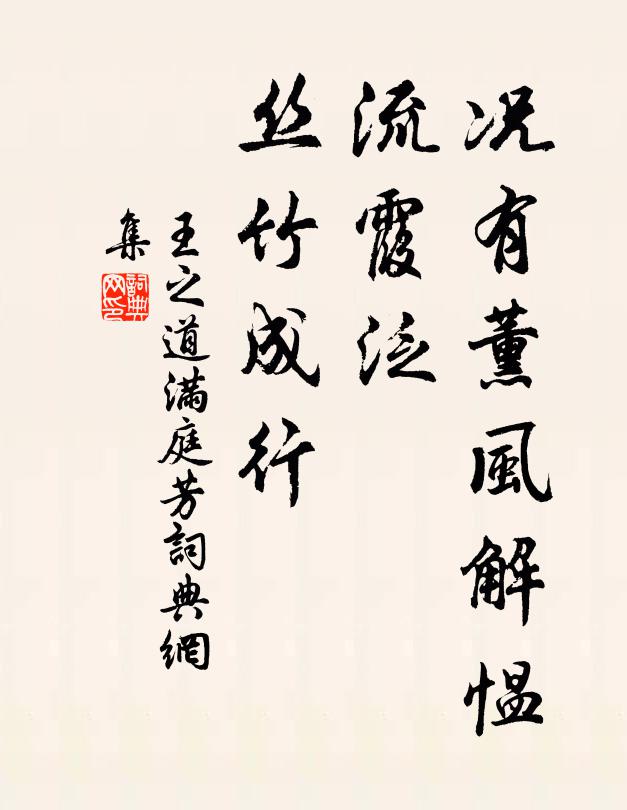 况有薰风解愠
流霞泛
丝竹成行
王之道满庭芳詞典網
集
詞典网印